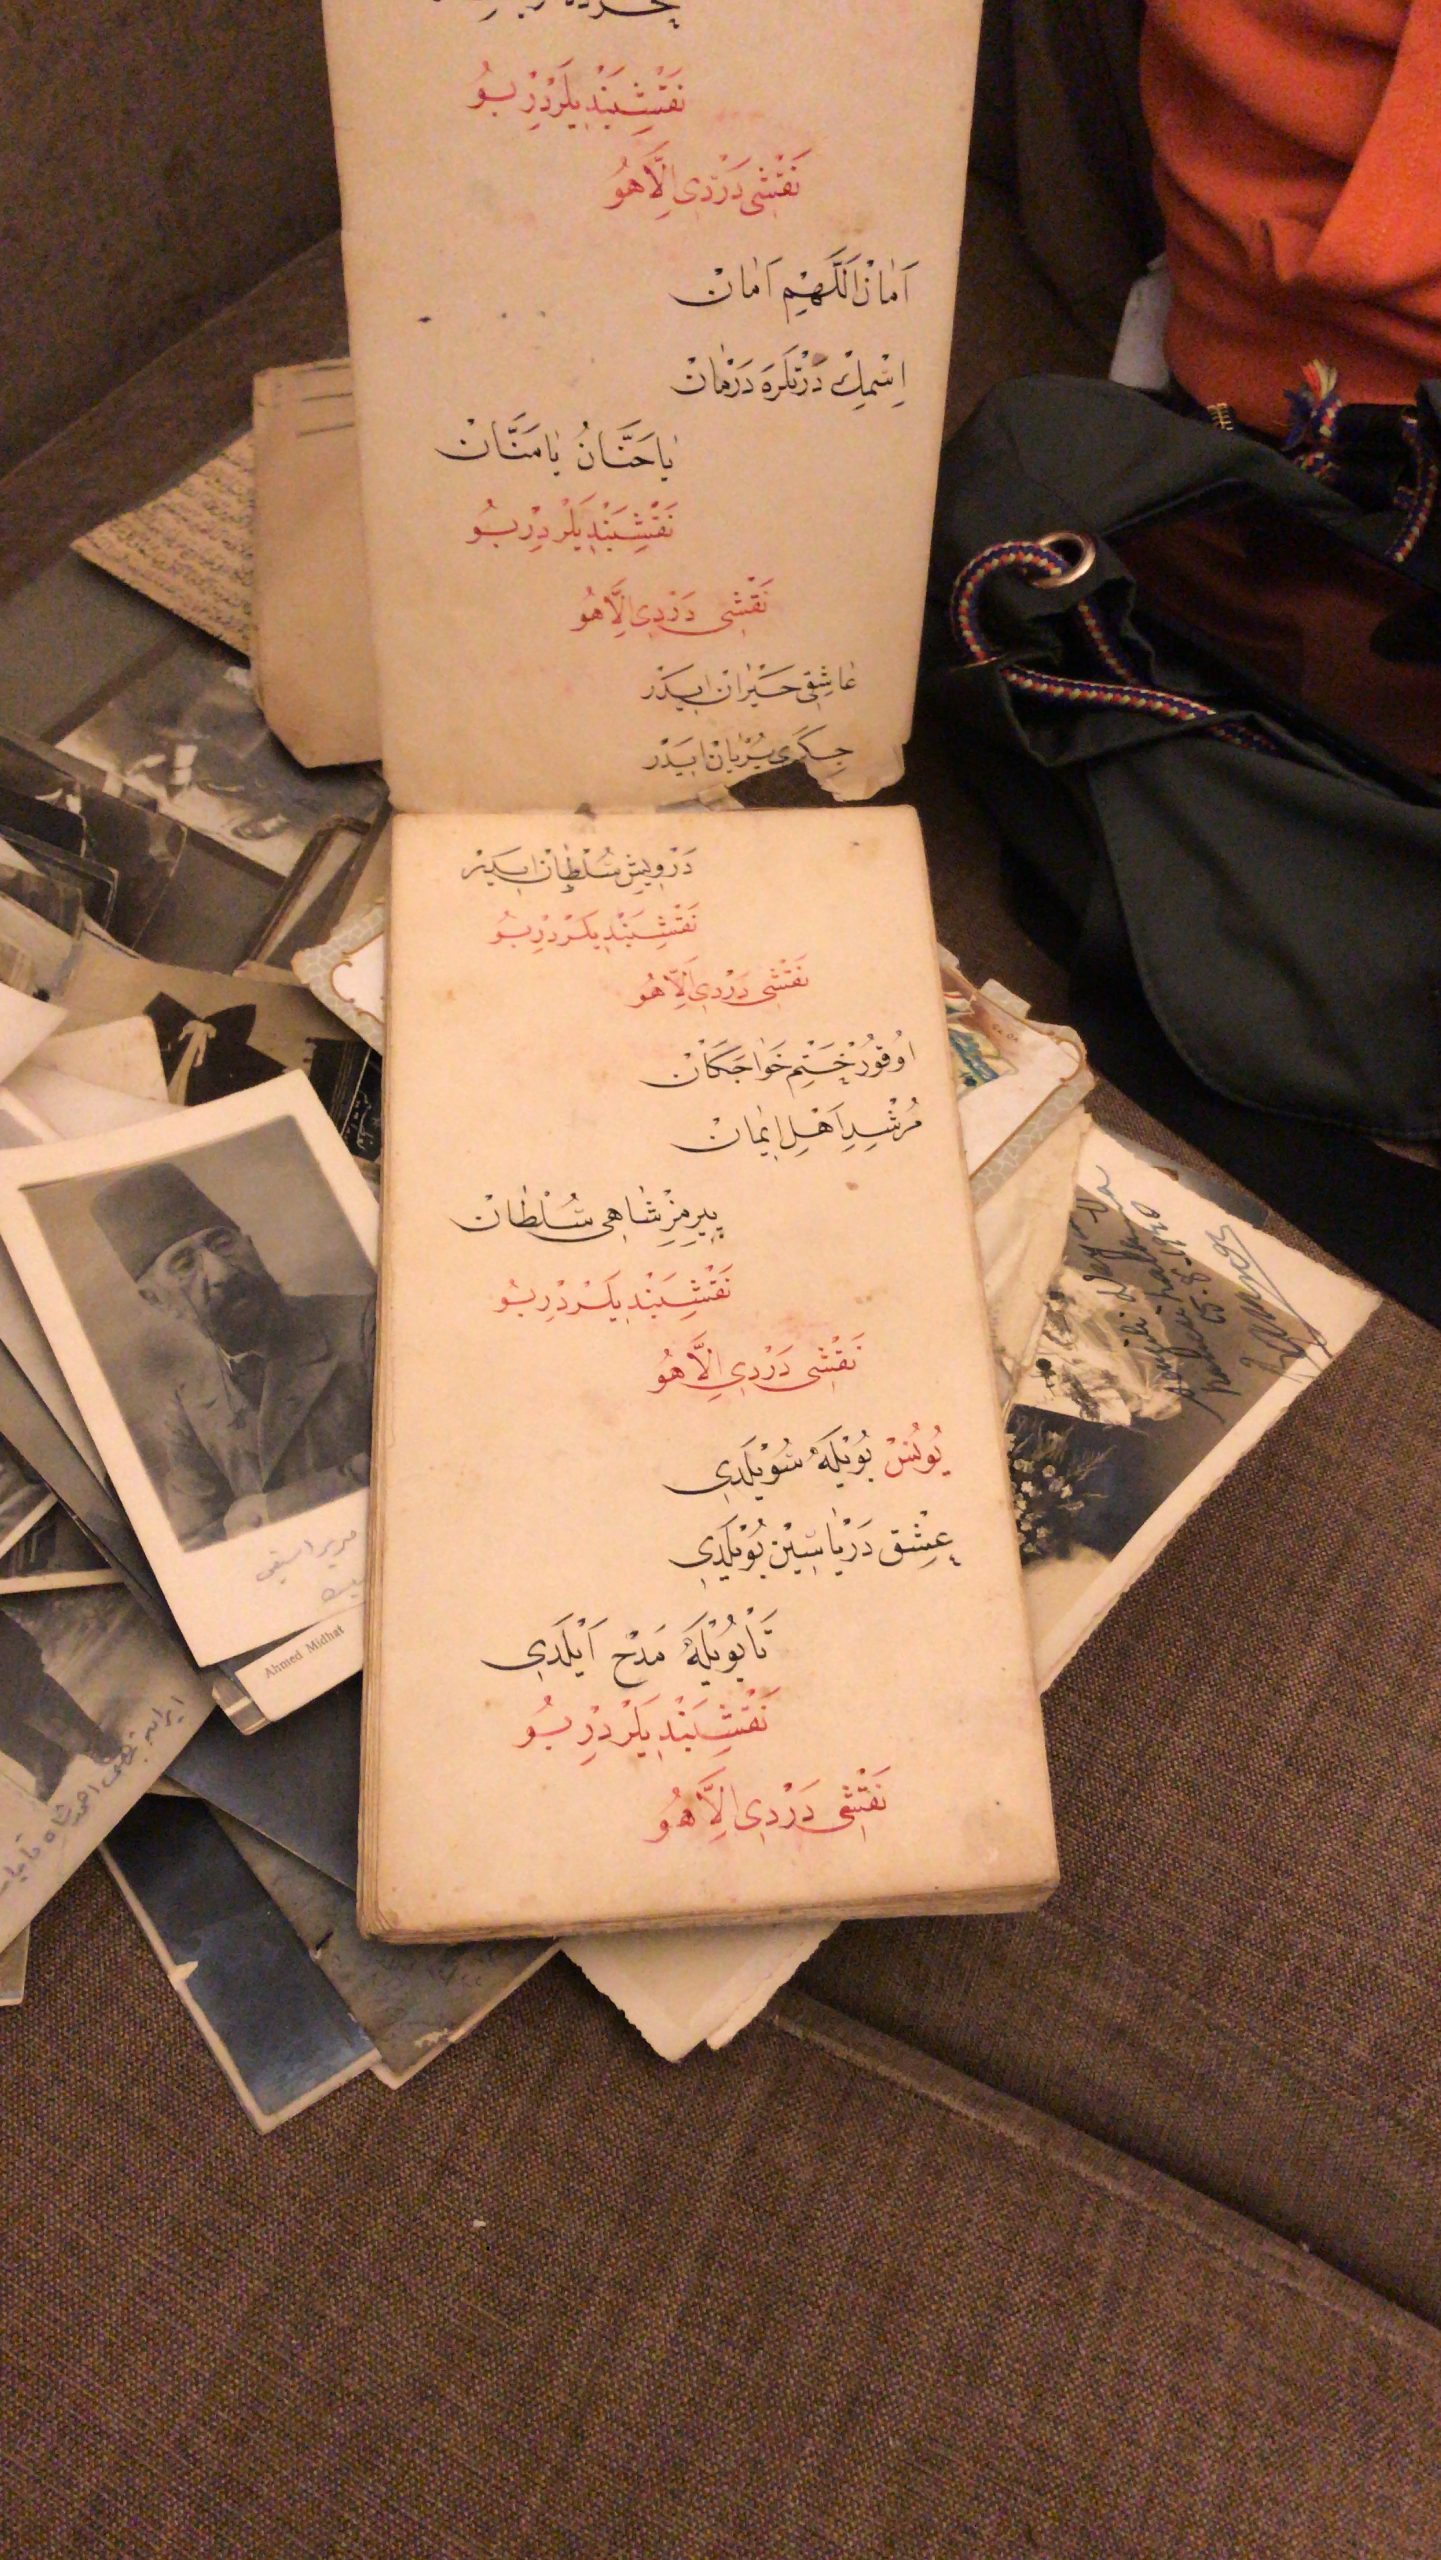 نَقْشِبَنْدِيلَرْدِرْ بُو
نَقْشِى دَرْدِى اِلَّا هُو
اَمَانْ اَللّٰهِيمْ اَمَانْ
اِسْمِكْ دَرْتْلَرَه دَرْمَانْ
يَا حَنَّانُ يَا مَنَّانْ
نَقْشِبَنْدِيلَرْدِرْ بُو
نَقْشِى دَرْدِى اِلَّا هُو
عَاشِقِى حَيْرَانْ اِيدَرْ
جِكَرِى بُرْيَانْ اِيدَرْ
دَرْوِيشِى سُلْطَانْ اِيدَرْ
نَقْشِبَنْدِيلَرْدِرْ بُو
نَقْشِى دَرْدِى اِلَّا هُو
اُوقُورْ خَتْمِ خَوَاجَكَانْ
مُرْشِدِ اَهْلِ اِيمَانْ
پِيرِمِزْ شَاهِى سُلْطَانْ
نَقْشِبَنْدِيلَرْدِرْ بُو
نَقْشِى دَرْدِى اِلَّا هُو
يُونُسْ بُويْلَهْ سُويْلَدِى
عِشْق دَرْيَاسِينْ بُويْلَدِى
تَا بُويْلَهْ مَدْح اَيْلَدِى
نَقْشِبَنْدِيلَرْدِرْ بُو
نَقْشِى دَرْدِى اِلَّا هُو
Ahmed Midhat
احمد شاه